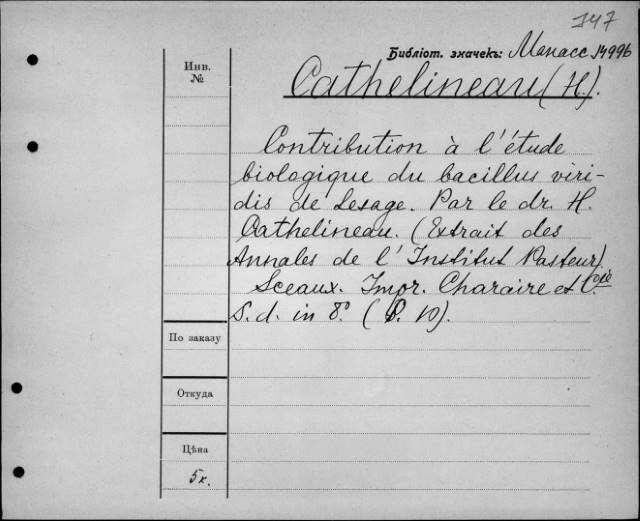 147
Библіот. значекъ: Манасс. 14996
Инв.
№
Cathelineau (H.).
Contribution à l'étude
biologique du bacillus viri-
dis de Lesage. Par le dr. H.
Cathelineau. (Extrait des
Annales de l'Institut Pasteur)
Sceaux. Impr. Charaire et Cie
S. d. in 8° (P. 10).
По заказу
Откуда
Цѣна
5 к.